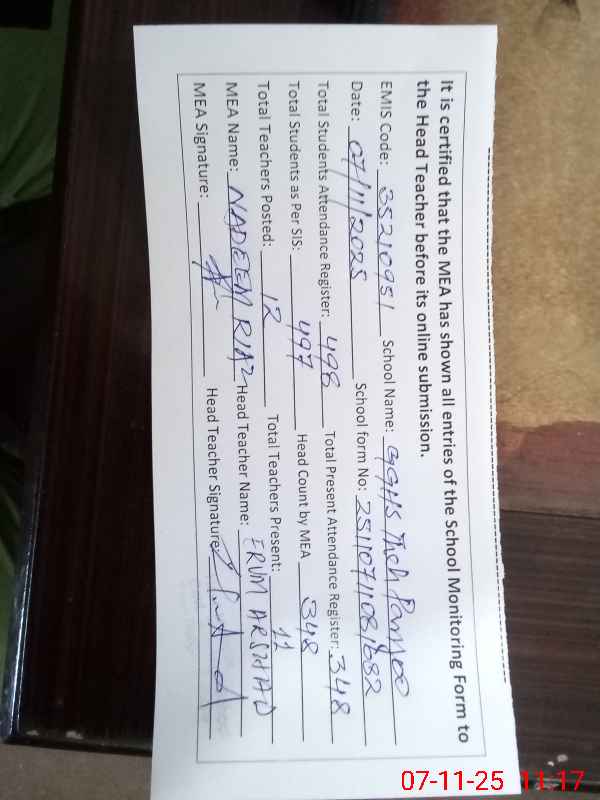 It is certified that the MEA has shown all entries of the School Monitoring Form to
the Head Teacher before its online submission.
EMIS Code: 35210951 School Name: GGHS
Date: 07/11/2025 School form No: 2511071081682
Total Students Attendance Register: 498 Total Present Attendance Register: 348
Total Students as Per SIS: 497 Head Count by MEA 348
Total Teachers Posted: 12 Total Teachers Present: 11
MEA Name: NADEEM RIAZ Head Teacher Name: ERUM ARSHAD
MEA Signature: Head Teacher Signature:
07-11-25 11:17